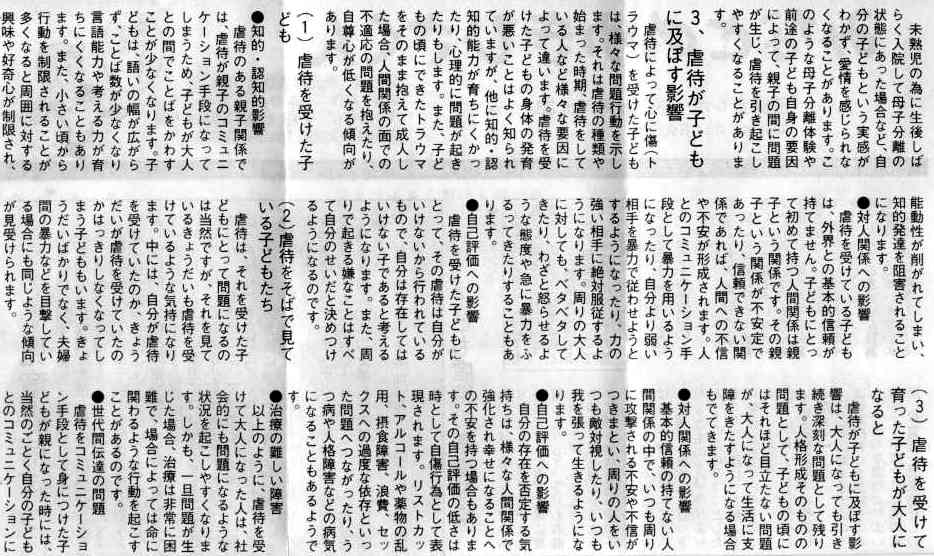 未熟児の為に生後しば
らく入院して母子分離の
状態にあった場合など、自
分の子どもという実感が
わかず、愛情を感じられな
くなることがあります。こ
のような母子分離体験や
前途の子ども自身の要因
によって、親子の間に問題
が生じ、虐待を引き起こし
やすくなることがありま
す。
3、虐待が子ども
に及ぼす影響
虐待によって心に傷(ト
ラウマ)を受けた子ども
は、様々な問題行動を示し
ます。それは虐待の種類や
始まった時期、虐待をして
いる人など様々な要因に
よって違います。虐待を受
けた子どもの身体の発育
が悪いことはよく知られ
ていますが、他に知的・認
知的能力が育ちにくかっ
たり、心理的に問題が起き
たりもします。また、子ど
もの頃にできたトラウマ
をそのまま抱えて成人し
た場合、人間関係の面での
不適応の問題を抱えたり、
自尊心が低くなる傾向が
あります。
(1)虐待を受けた子
ども
●知的・認知的影響
虐待のある親子関係で
は、虐待が親子のコミュニ
ケーション手段になって
しまうため、子どもが大人
との間でことばをかわす
ことが少なくなります。子
どもは、語いの幅が広がら
ず、ことば数が少なくなり
言語能力や考える力が育
ちにくくなることもあり
ます。また、小さい頃から
行動を制限されることが
多くなると周囲に対する
興味や好奇心が制限され、
能動性が削がれてしまい、
知的発達を阻害されること
になります。
●対人関係への影響
虐待を受けている子ども
は、外界との基本的信頼が
持てません。子どもにとっ
て初めて持つ人間関係は親
子という関係です。その親
子という関係が不安定で
あったり、信頼できない関
係であれば、人間への不信
や不安が形成されます。人
とのコミュニケーション手
段として暴力を用いるよう
になったり、自分より弱い
相手を暴力で従わせようと
するようになったり、力の
強い相手に絶対服従するよ
うになります。周りの大人
に対しても、ベタベタして
きたり、わざと怒らせるよ
うな態度や急に暴力をふ
るってきたりすることもあ
ります。
●自己評価への影響
虐待を受けた子どもに
とって、その虐待は自分が
いけないから行われている
もので、自分は存在しては
いけない子であると考える
ようになります。また、周
りで起きる嫌なことはすべ
て自分のせいだと決めつけ
るようになるのです。
(2)虐待をそばで見て
いる子どもたち
虐待は、それを受けた子
どもにとって問題になるの
は当然ですが、それを見て
いるきょうだいも虐待を受
けているような気持になり
ます。中には、自分が虐待
を受けていたのか、きょう
だいが虐待を受けていたの
かはっきりしなくなってし
まう子どももいます。きょ
うだいばかりでなく、夫婦
間の暴力などを目撃してい
る場合にも同じような傾向
が見受けられます。
(3)虐待を受けて
育った子どもが大人に
なると
虐待が子どもに及ぼす影
響は、大人になっても引き
続き深刻な問題として残り
ます。人格形成そのものの
問題として、子どもの頃に
はそれほど目立たない問題
が、大人になって生活に支
障をきたすようになる場合
もでてきます。
●対人関係への影響
基本的信頼の持てない人
間関係の中で、いつも周り
に攻撃される不安や不信が
つきまとい、周りの人をい
つも敵対視したり、いつも
我を張って生きるようにな
ります。
●自己評価への影響
自分の存在を否定する気
持ちは、様々な人間関係で
強化され幸せになることへ
の不安を持つ場合もありま
す。その自己評価の低さは
時として自傷行為として表
現されます。リストカッ
ト、アルコールや薬物の乱
用、摂食障害、浪費、セッ
クスへの過度な依存といっ
た問題へつながったり、う
つ病や人格障害などの病気
になることもあるようで
す。
●治療の難しい障害
以上のように、虐待を受
けて大人になった人は、社
会的にも問題になるような
状況を起こしやすくなりま
す。しかも、一旦問題が生
じた場合、治療は非常に困
難で、場合によっては命に
関わるような行動を起こす
ことがあるのです。
●世代間伝達の問題
虐待をコミュニケーショ
ン手段として身につけた子
どもが親になった時には、
当然のごとく自分の子ども
とのコミュニケーションに